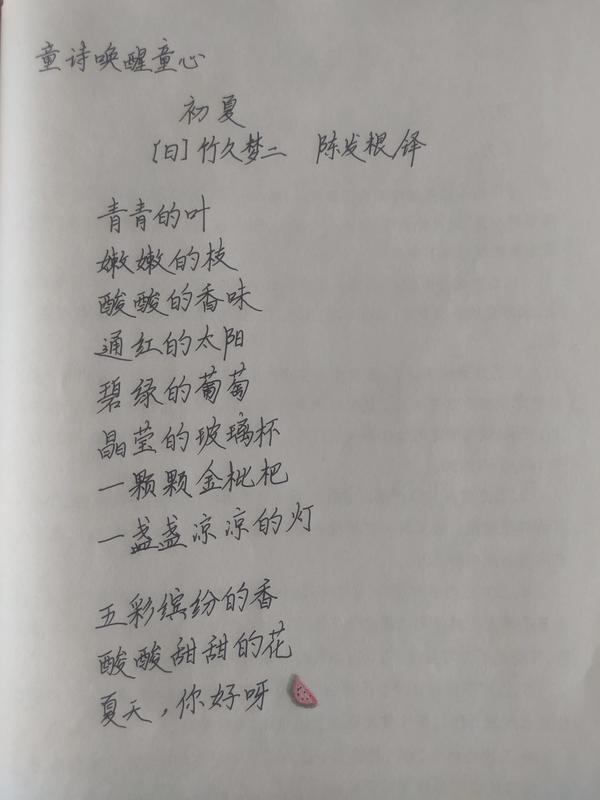 童诗唤醒童心
初夏
[日]竹久梦二 陈发根 译
青青的叶
嫩嫩的枝
酸酸的香味
通红的太阳
碧绿的葡萄
晶莹的玻璃杯
一颗颗金枇杷
一盏盏凉凉的灯
五彩缤纷的香
酸酸甜甜的花
夏天，你好呀